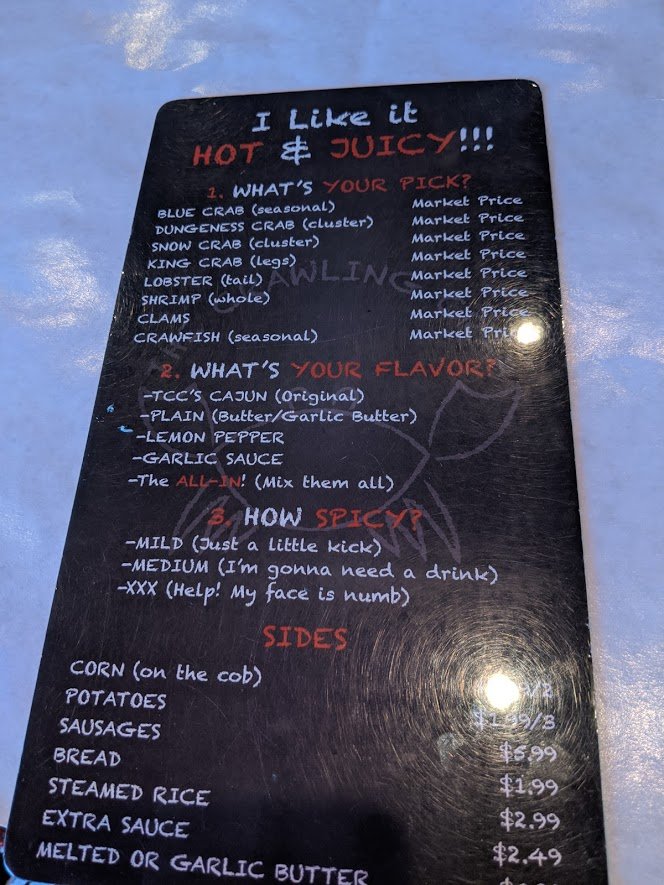 I Like it
HOT & JUICY!!!
1. WHAT'S YOUR PICK?
BLUE CRAB (seasonal) Market Price
DUNGENESS CRAB (cluster) Market Price
SNOW CRAB (cluster) Market Price
KING CRAB (legs) Market Price
LOBSTER (tail) Market Price
SHRIMP (whole) Market Price
CLAMS Market Price
CRAWFISH (seasonal) Market
THE CRAWLING
2. WHAT'S YOUR FLAVOR?
-TCC'S CAJUN (Original)
-PLAIN (Butter/Garlic Butter)
-LEMON PEPPER
-GARLIC SAUCE
-The ALL-IN! (Mix them all)
3. HOW SPICY?
-MILD (Just a little kick)
-MEDIUM (I'm gonna need a drink)
-XXX (Help! My face is numb)
SIDES
CORN (on the cob)
POTATOES $1.99/3
SAUSAGES $5.99
BREAD $1.99
STEAMED RICE $2.99
EXTRA SAUCE $2.49
MELTED OR GARLIC BUTTER